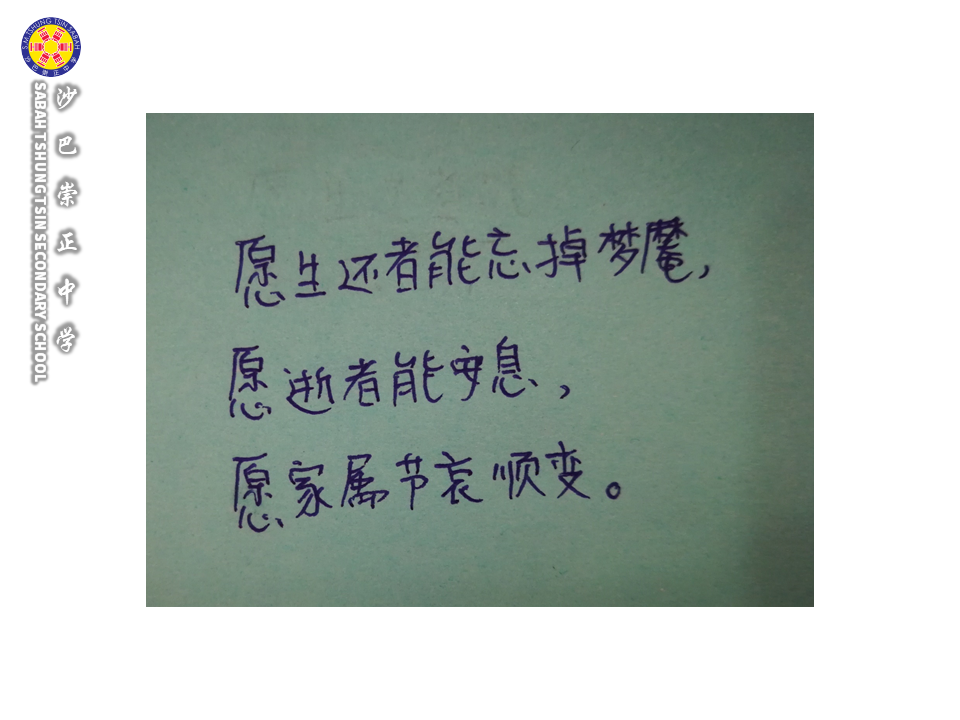 S.M. TSHUNG TSIN SABAH
沙巴崇正中学
沙巴崇正中学
SABAH TSHUNG TSIN SECONDARY SCHOOL
愿生还者能忘掉梦魇,
愿逝者能安息,
愿家属节哀顺变。